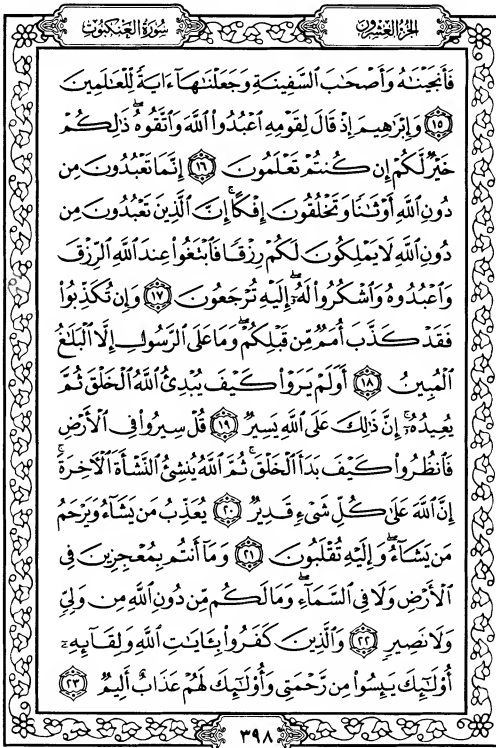 الجزء العشرون
سورة العنكبوت
فَأَنجَيْنَٰهُ وَأَصْحَٰبَ ٱلسَّفِينَةِ وَجَعَلْنَٰهَآ ءَايَةً لِّلْعَٰلَمِينَ
﴿١٥﴾ وَإِبْرَٰهِيمَ إِذْ قَالَ لِقَوْمِهِ ٱعْبُدُوا۟ ٱللَّهَ وَٱتَّقُوهُ ۖ ذَٰلِكُمْ
خَيْرٌ لَّكُمْ إِن كُنتُمْ تَعْلَمُونَ ﴿١٦﴾ إِنَّمَا تَعْبُدُونَ مِن
دُونِ ٱللَّهِ أَوْثَٰنًا وَتَخْلُقُونَ إِفْكًا ۚ إِنَّ ٱلَّذِينَ تَعْبُدُونَ مِن
دُونِ ٱللَّهِ لَا يَمْلِكُونَ لَكُمْ رِزْقًا فَٱبْتَغُوا۟ عِندَ ٱللَّهِ ٱلرِّزْقَ
وَٱعْبُدُوهُ وَٱشْكُرُوا۟ لَهُۥٓ ۖ إِلَيْهِ تُرْجَعُونَ ﴿١٧﴾ وَإِن تُكَذِّبُوا۟
فَقَدْ كَذَّبَ أُمَمٌ مِّن قَبْلِكُمْ ۖ وَمَا عَلَى ٱلرَّسُولِ إِلَّا ٱلْبَلَٰغُ
ٱلْمُبِينُ ﴿١٨﴾ أَوَلَمْ يَرَوْا۟ كَيْفَ يُبْدِئُ ٱللَّهُ ٱلْخَلْقَ ثُمَّ
يُعِيدُهُۥٓ ۚ إِنَّ ذَٰلِكَ عَلَى ٱللَّهِ يَسِيرٌ ﴿١٩﴾ قُلْ سِيرُوا۟ فِى ٱلْأَرْضِ
فَٱنظُرُوا۟ كَيْفَ بَدَأَ ٱلْخَلْقَ ۚ ثُمَّ ٱللَّهُ يُنشِئُ ٱلنَّشْأَةَ ٱلْءَاخِرَةَ ۚ
إِنَّ ٱللَّهَ عَلَىٰ كُلِّ شَىْءٍ قَدِيرٌ ﴿٢٠﴾ يُعَذِّبُ مَن يَشَآءُ وَيَرْحَمُ
مَن يَشَآءُ ۖ وَإِلَيْهِ تُقْلَبُونَ ﴿٢١﴾ وَمَآ أَنتُم بِمُعْجِزِينَ فِى
ٱلْأَرْضِ وَلَا فِى ٱلسَّمَآءِ ۖ وَمَا لَكُم مِّن دُونِ ٱللَّهِ مِن وَلِىٍّ
وَلَا نَصِيرٍ ﴿٢٢﴾ وَٱلَّذِينَ كَفَرُوا۟ بِـَٔايَٰتِ ٱللَّهِ وَلِقَآئِهِۦٓ
أُو۟لَٰٓئِكَ يَئِسُوا۟ مِن رَّحْمَتِى وَأُو۟لَٰٓئِكَ لَهُمْ عَذَابٌ أَلِيمٌ ﴿٢٣﴾
٣٩٨